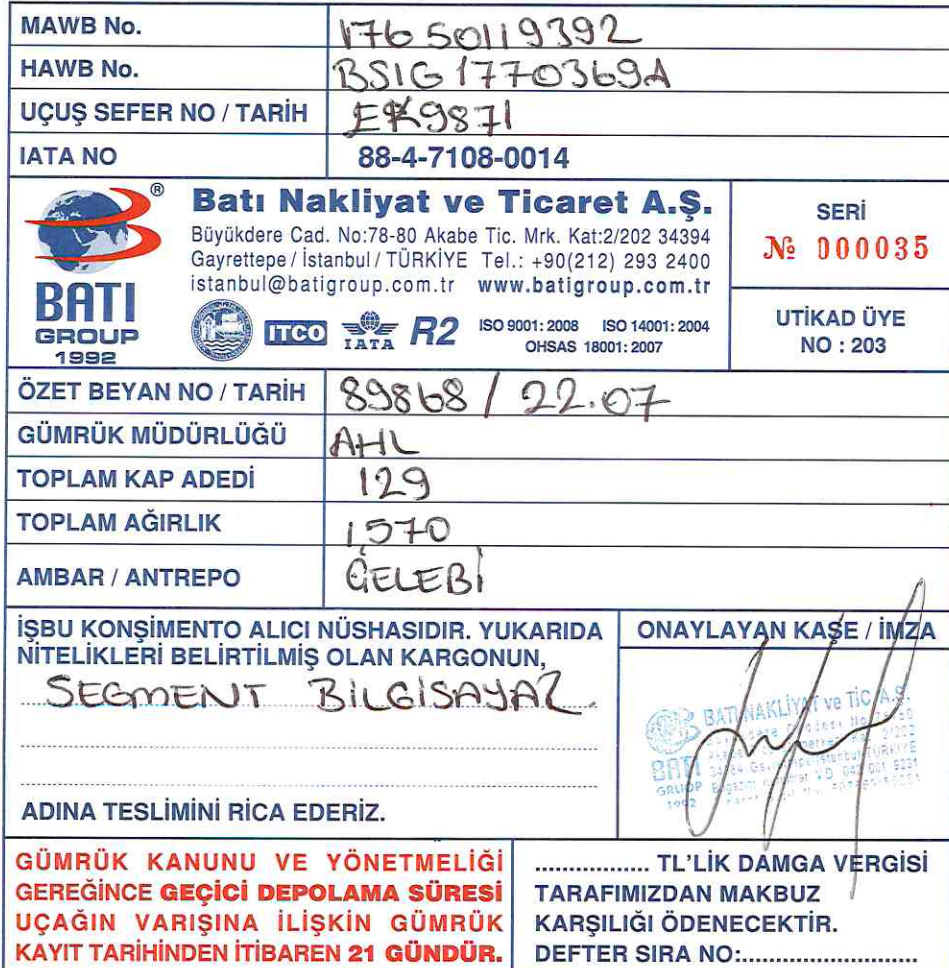 MAWB No. 176 50119392
HAWB No. BSIG1770369A
UÇUŞ SEFER NO / TARİH EK9871
IATA NO 88-4-7108-0014
Batı Nakliyat ve Ticaret A.Ş.
Büyükdere Cad. No:78-80 Akabe Tic. Mrk. Kat:2/202 34394
Gayrettepe / İstanbul / TÜRKİYE Tel.: +90(212) 293 2400
istanbul@batigroup.com.tr www.batigroup.com.tr
BATI
GROUP
1992
ITCO IATA R2 ISO 9001: 2008 ISO 14001: 2004
OHSAS 18001: 2007
SERİ
№ 000035
UTİKAD ÜYE
NO : 203
ÖZET BEYAN NO / TARİH 89868 / 22.07
GÜMRÜK MÜDÜRLÜĞÜ AHL
TOPLAM KAP ADEDİ 129
TOPLAM AĞIRLIK 1,570
AMBAR / ANTREPO ÇELEBİ
İŞBU KONŞİMENTO ALICI NÜSHASIDIR. YUKARIDA
NİTELİKLERİ BELİRTİLMİŞ OLAN KARGONUN,
SEGMENT BİLGİSAYAR
ADINA TESLİMİNİ RİCA EDERİZ.
ONAYLAYAN KAŞE / İMZA
BATI NAKLİYAT ve TİC. A.Ş.
BATI
GRUOP
1992
GÜMRÜK KANUNU VE YÖNETMELİĞİ
GEREĞİNCE GEÇİCİ DEPOLAMA SÜRESİ
UÇAĞIN VARIŞINA İLİŞKİN GÜMRÜK
KAYIT TARİHİNDEN İTİBAREN 21 GÜNDÜR.
................. TL'LİK DAMGA VERGİSİ
TARAFIMIZDAN MAKBUZ
KARŞILIĞI ÖDENECEKTİR.
DEFTER SIRA NO:..........................